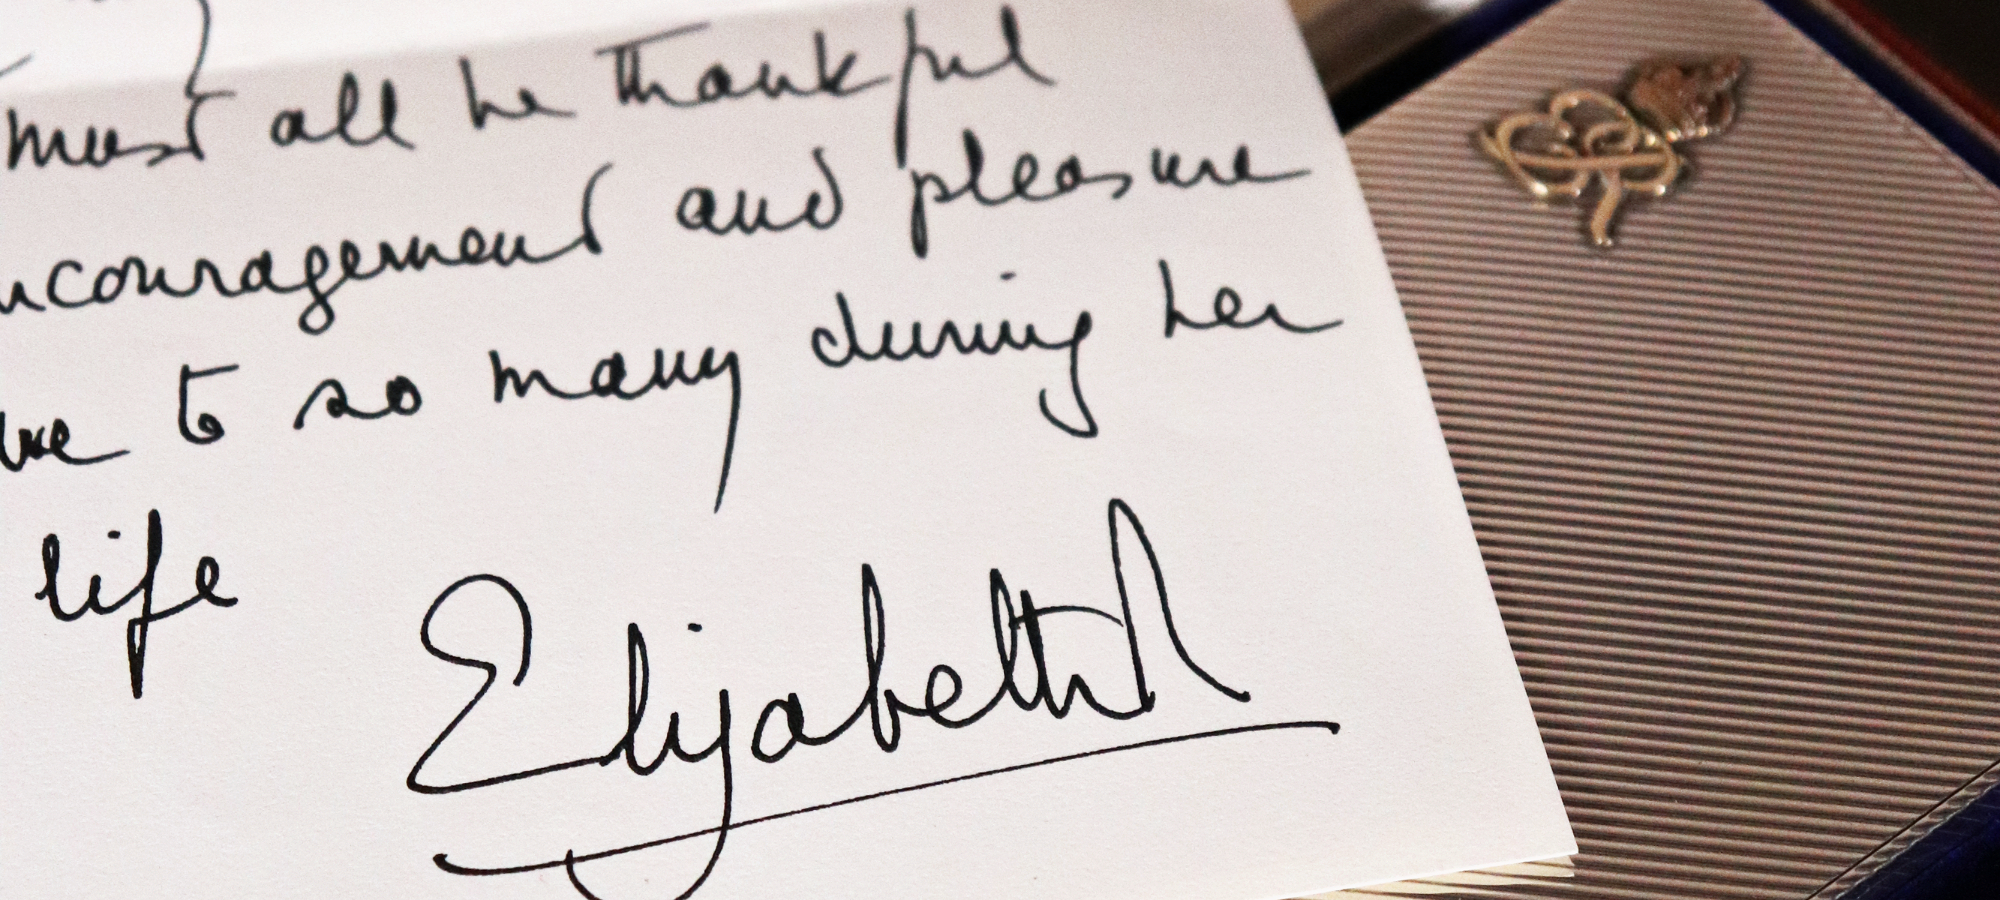 must all be thankful
ncouragement and pleasure
ve to so many during her
life
Elizabeth R